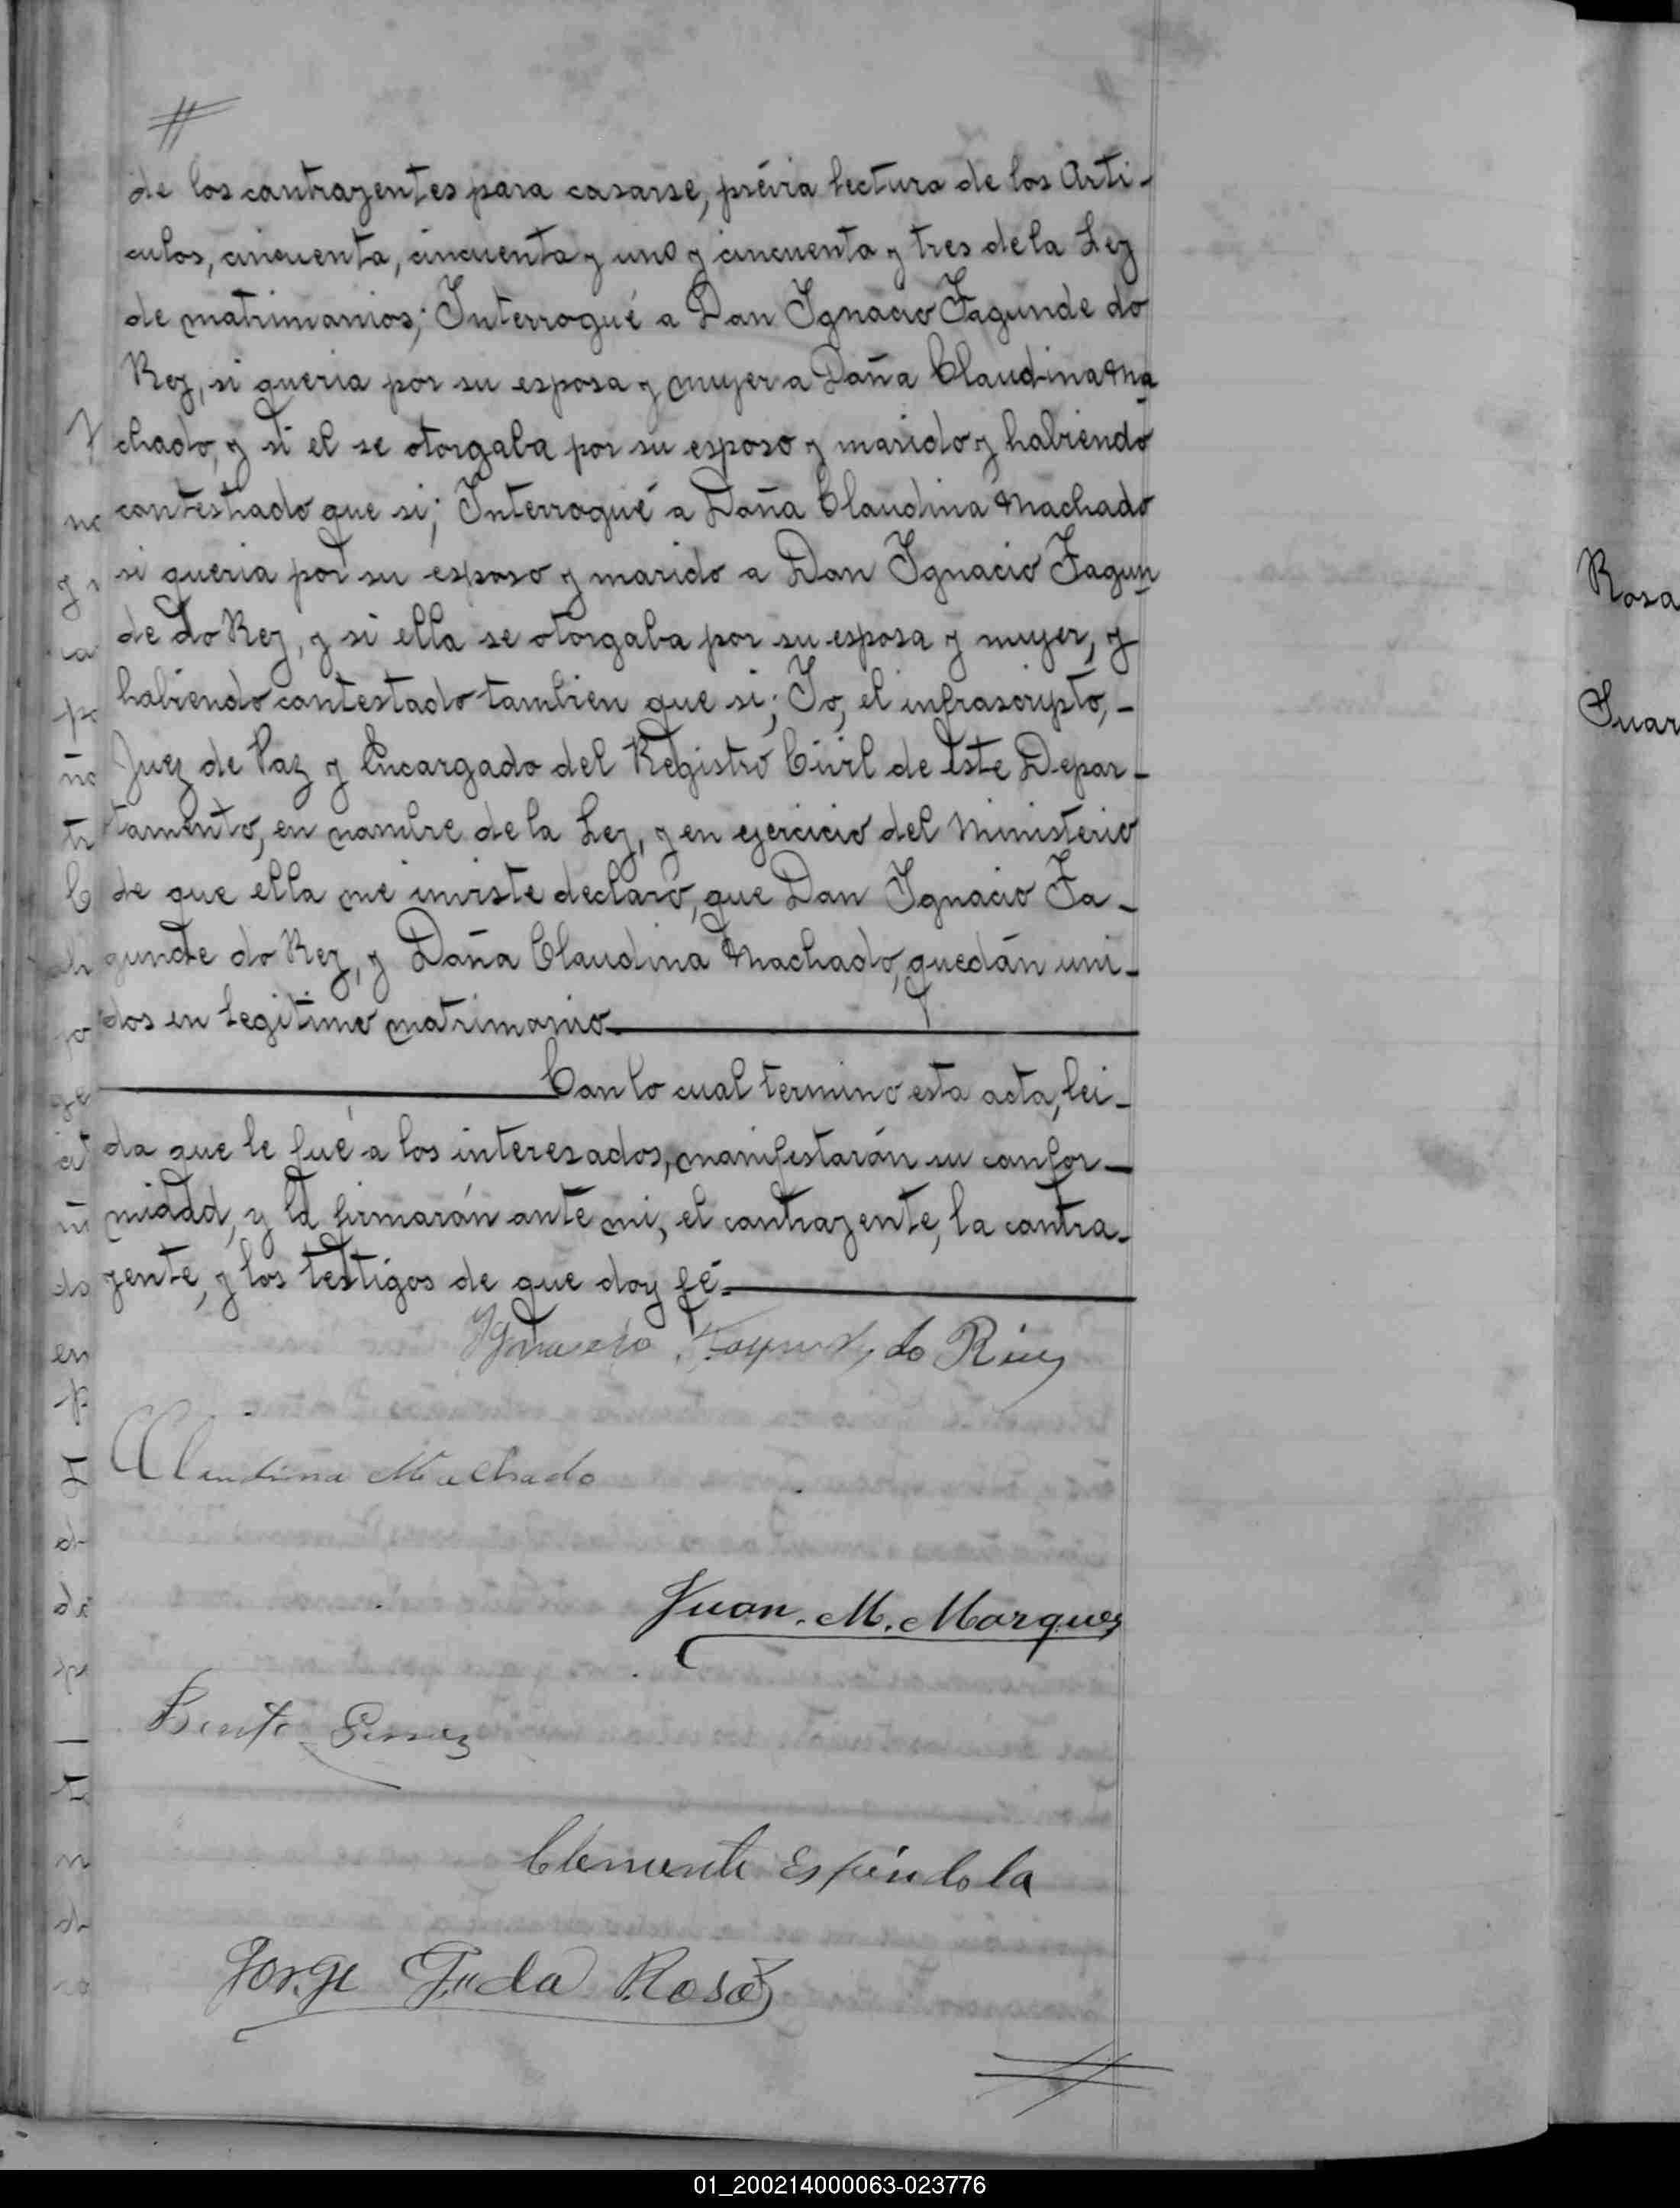 de los contrayentes para casarse, prévia lectura de los Arti-
culos, cincuenta, cincuenta y uno y cincuenta y tres de la Ley
de matrimonios; Interrogué a Don Ignacio Fagunde do
Rey, si queria por su esposa y mujer a Doña Claudina Ma
chado, y si el se otorgaba por su esposo y marido y habiendo
contestado que si; Interrogué a Doña Claudina Machado
si queria por su esposo y marido a Don Ignacio Fagun
de do Rey, y si ella se otorgaba por su esposa y mujer, y
habiendo contestado tambien que si; Yo, el infrascripto, -
Juez de Paz y Encargado del Registro Civil de este Depar-
tamento, en nombre de la Ley, y en ejercicio del Ministerio
de que ella me inviste declaro, que Don Ignacio Fa-
gunde do Rey, y Doña Claudina Machado, quedán uni-
dos en legitimo matrimonio
Con lo cual termino esta acta, lei-
da que le fué a los interesados, manifestarón su confor-
midad, y la firmarón ante mi, el contrayente, la contra-
yente, y los testigos de que doy fé.
Ignacio do
Claudina Machado
Juan. M. Marques
Benito
Clemente Espindola
Jorge da Rosa
Rosa
01_200214000063-023776